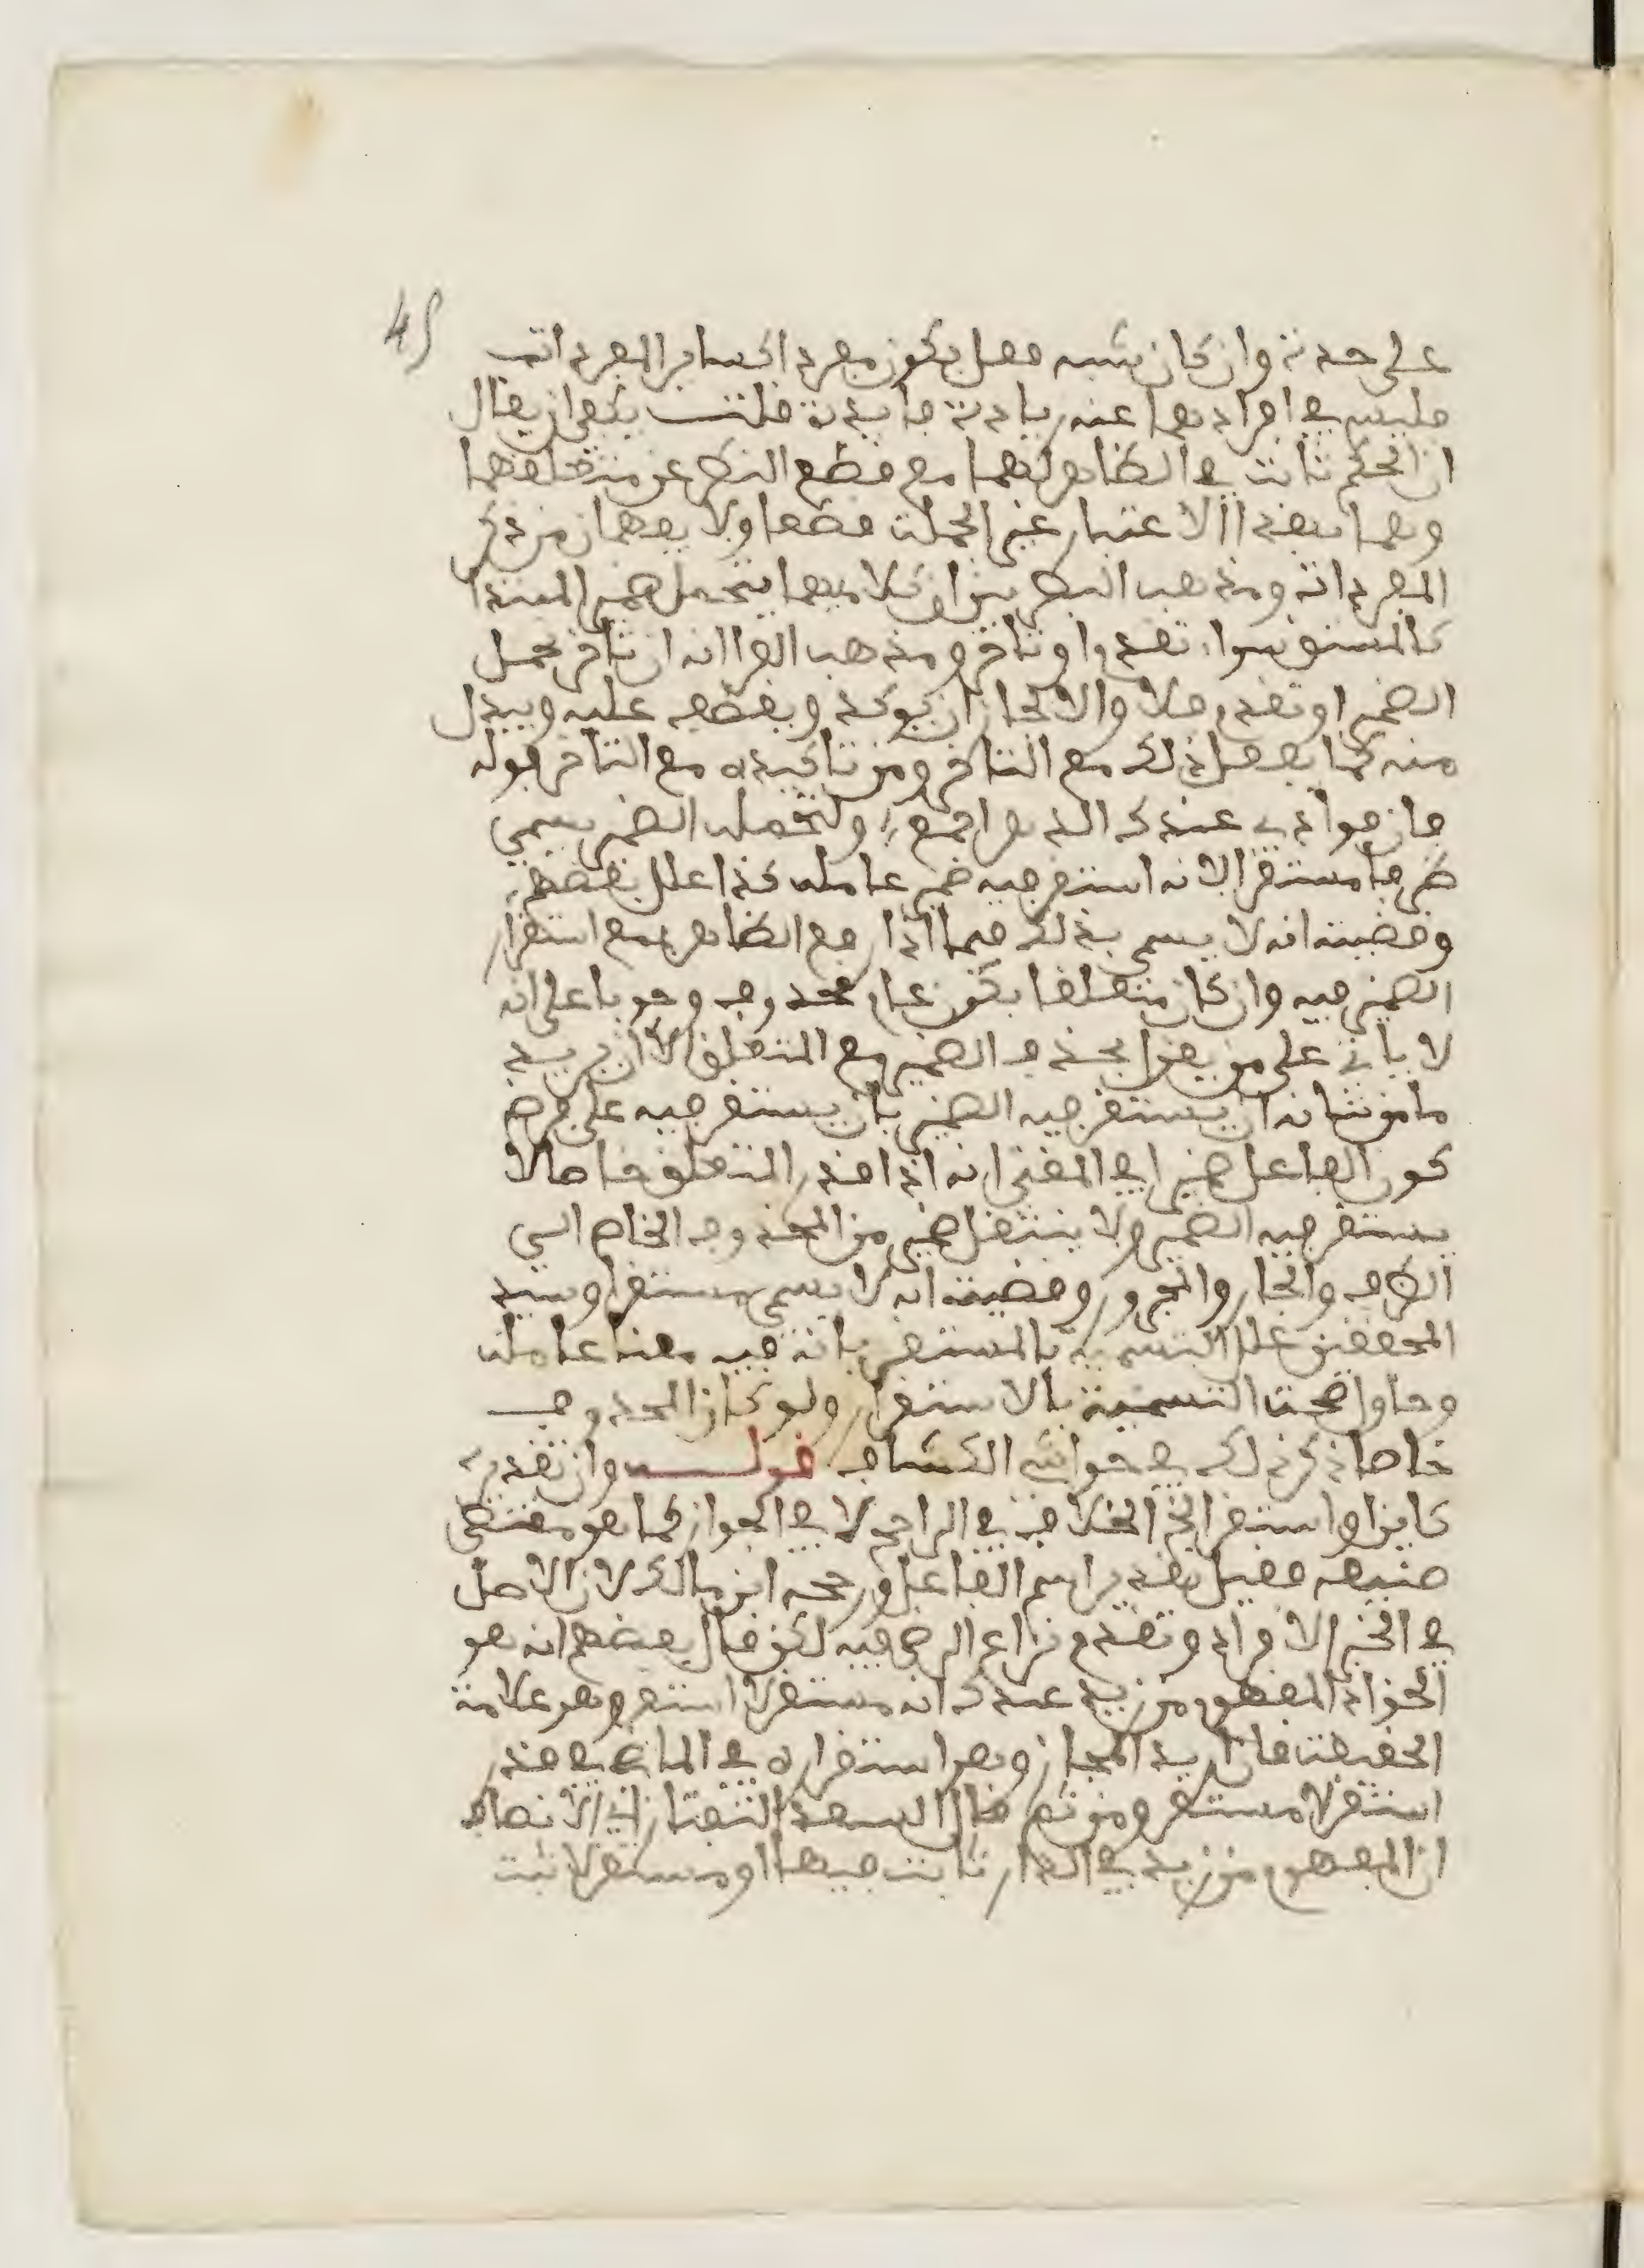 45
على حدته وان كان شبه فعل يكون مفردا كساير المفردات
فليس في افرادهما عنه زيادة فايدة قلت يكفي ان يقال
ان الحكم ثابت في الظاهر لهما مع قطع النظر عن متعلقهما
وهما بهذا الاعتبار غير الجملة قطعا ولا يفهمان من ذكر
المفردات ومذهب البصريين ان كلا منهما يتحمل ضمير المبتدا
كالمشتق سواء تقدم او تاخر ومذهب الفرا انه ان تاخر تحمل
الضمير او تقدم فلا والا لجاز ان يوكد ويعطف عليه ويبدل
منه كما يفعل ذلك مع التاخر ومن تاكيده مع التاخر قوله
فان فوادي عندك الدهر اجمع، ولتحمله الضمير يسمى
ظرفا مستقرا لانه استقر فيه ضمير عامله كذا علل بعضهم
وقضيته انه لا يسمى بذلك فيما اذا رفع الظاهر لمنع استقرار
الضمير فيه وان كان متعلقا بكون عام محذوف وجوبا على انه
لا ياتي على من يقول بحذف الضمير مع المتعلق الا ان يريد
ما من شانه ان يستقر فيه الضمير بان يستقر فيه على فرض
كون الفاعل ضميرا في المغني انه اذا قدر المتعلق خاصا لا
يستقر فيه الضمير ولا ينتقل ضمير من المحذوف الخاص الى
الظرف والجار والمجرور وقضيته انه لا يسمى مستقرا وسيد
المحققين علل التسمية بالمستقر بانه فيه معنا عامله
وحاول صحة التسمية بالاستقرار ولو كان المحذوف
خاصا ذكر ذلك في حواشي الكشاف قوله وان تقديره
كاين او استقر الخ الخلاف في الراجح لا في الجواز كما هو مقتضى
صنيعه فقيل يقدر اسم الفاعل ورجحه ابن مالك لان الاصل
في الخبر الافراد وتقدم نزاع الرضي فيه لكن قال بعضهم انه هو
الحق اذ المفهوم من زيد عندك انه مستقر لا استقر وهو علامة
الحقيقة فان اريد المجاز وهو استقراره في الماضي قدر
استقر لا مستقر ومن ثم قال السعد التفتازاني الانصاف
ان المفهوم من زيد في الدار ثابت فيها او مستقر لا ثبت